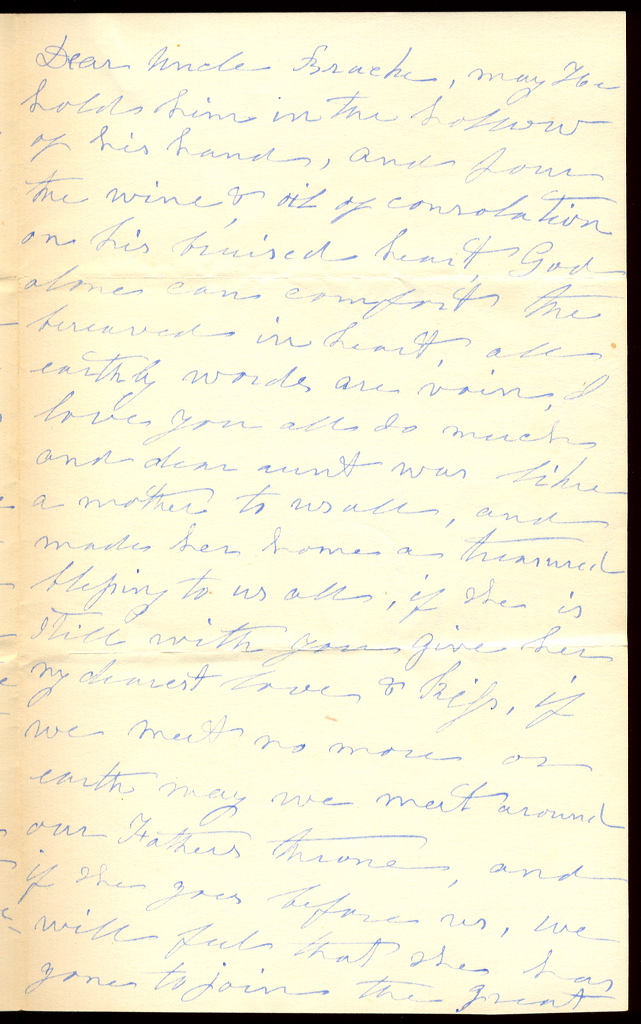 Dear Uncle Brache, may He
holds him in the hollow
of his hand, and pour
the wine & oil of consolation
on his bruised heart, God
alone can comfort the
bereaved in heart, all
earthly words are vain, I
love you all so much
and dear aunt was like
a mother to us all, and
made her home a treasured
blessing to us all, if she is
still with you give her
my dearest love & kiss, if
we meet no more on
earth may we meet around
our Fathers throne, and
if she goes before us, we
will feel that she has
gone to join the great